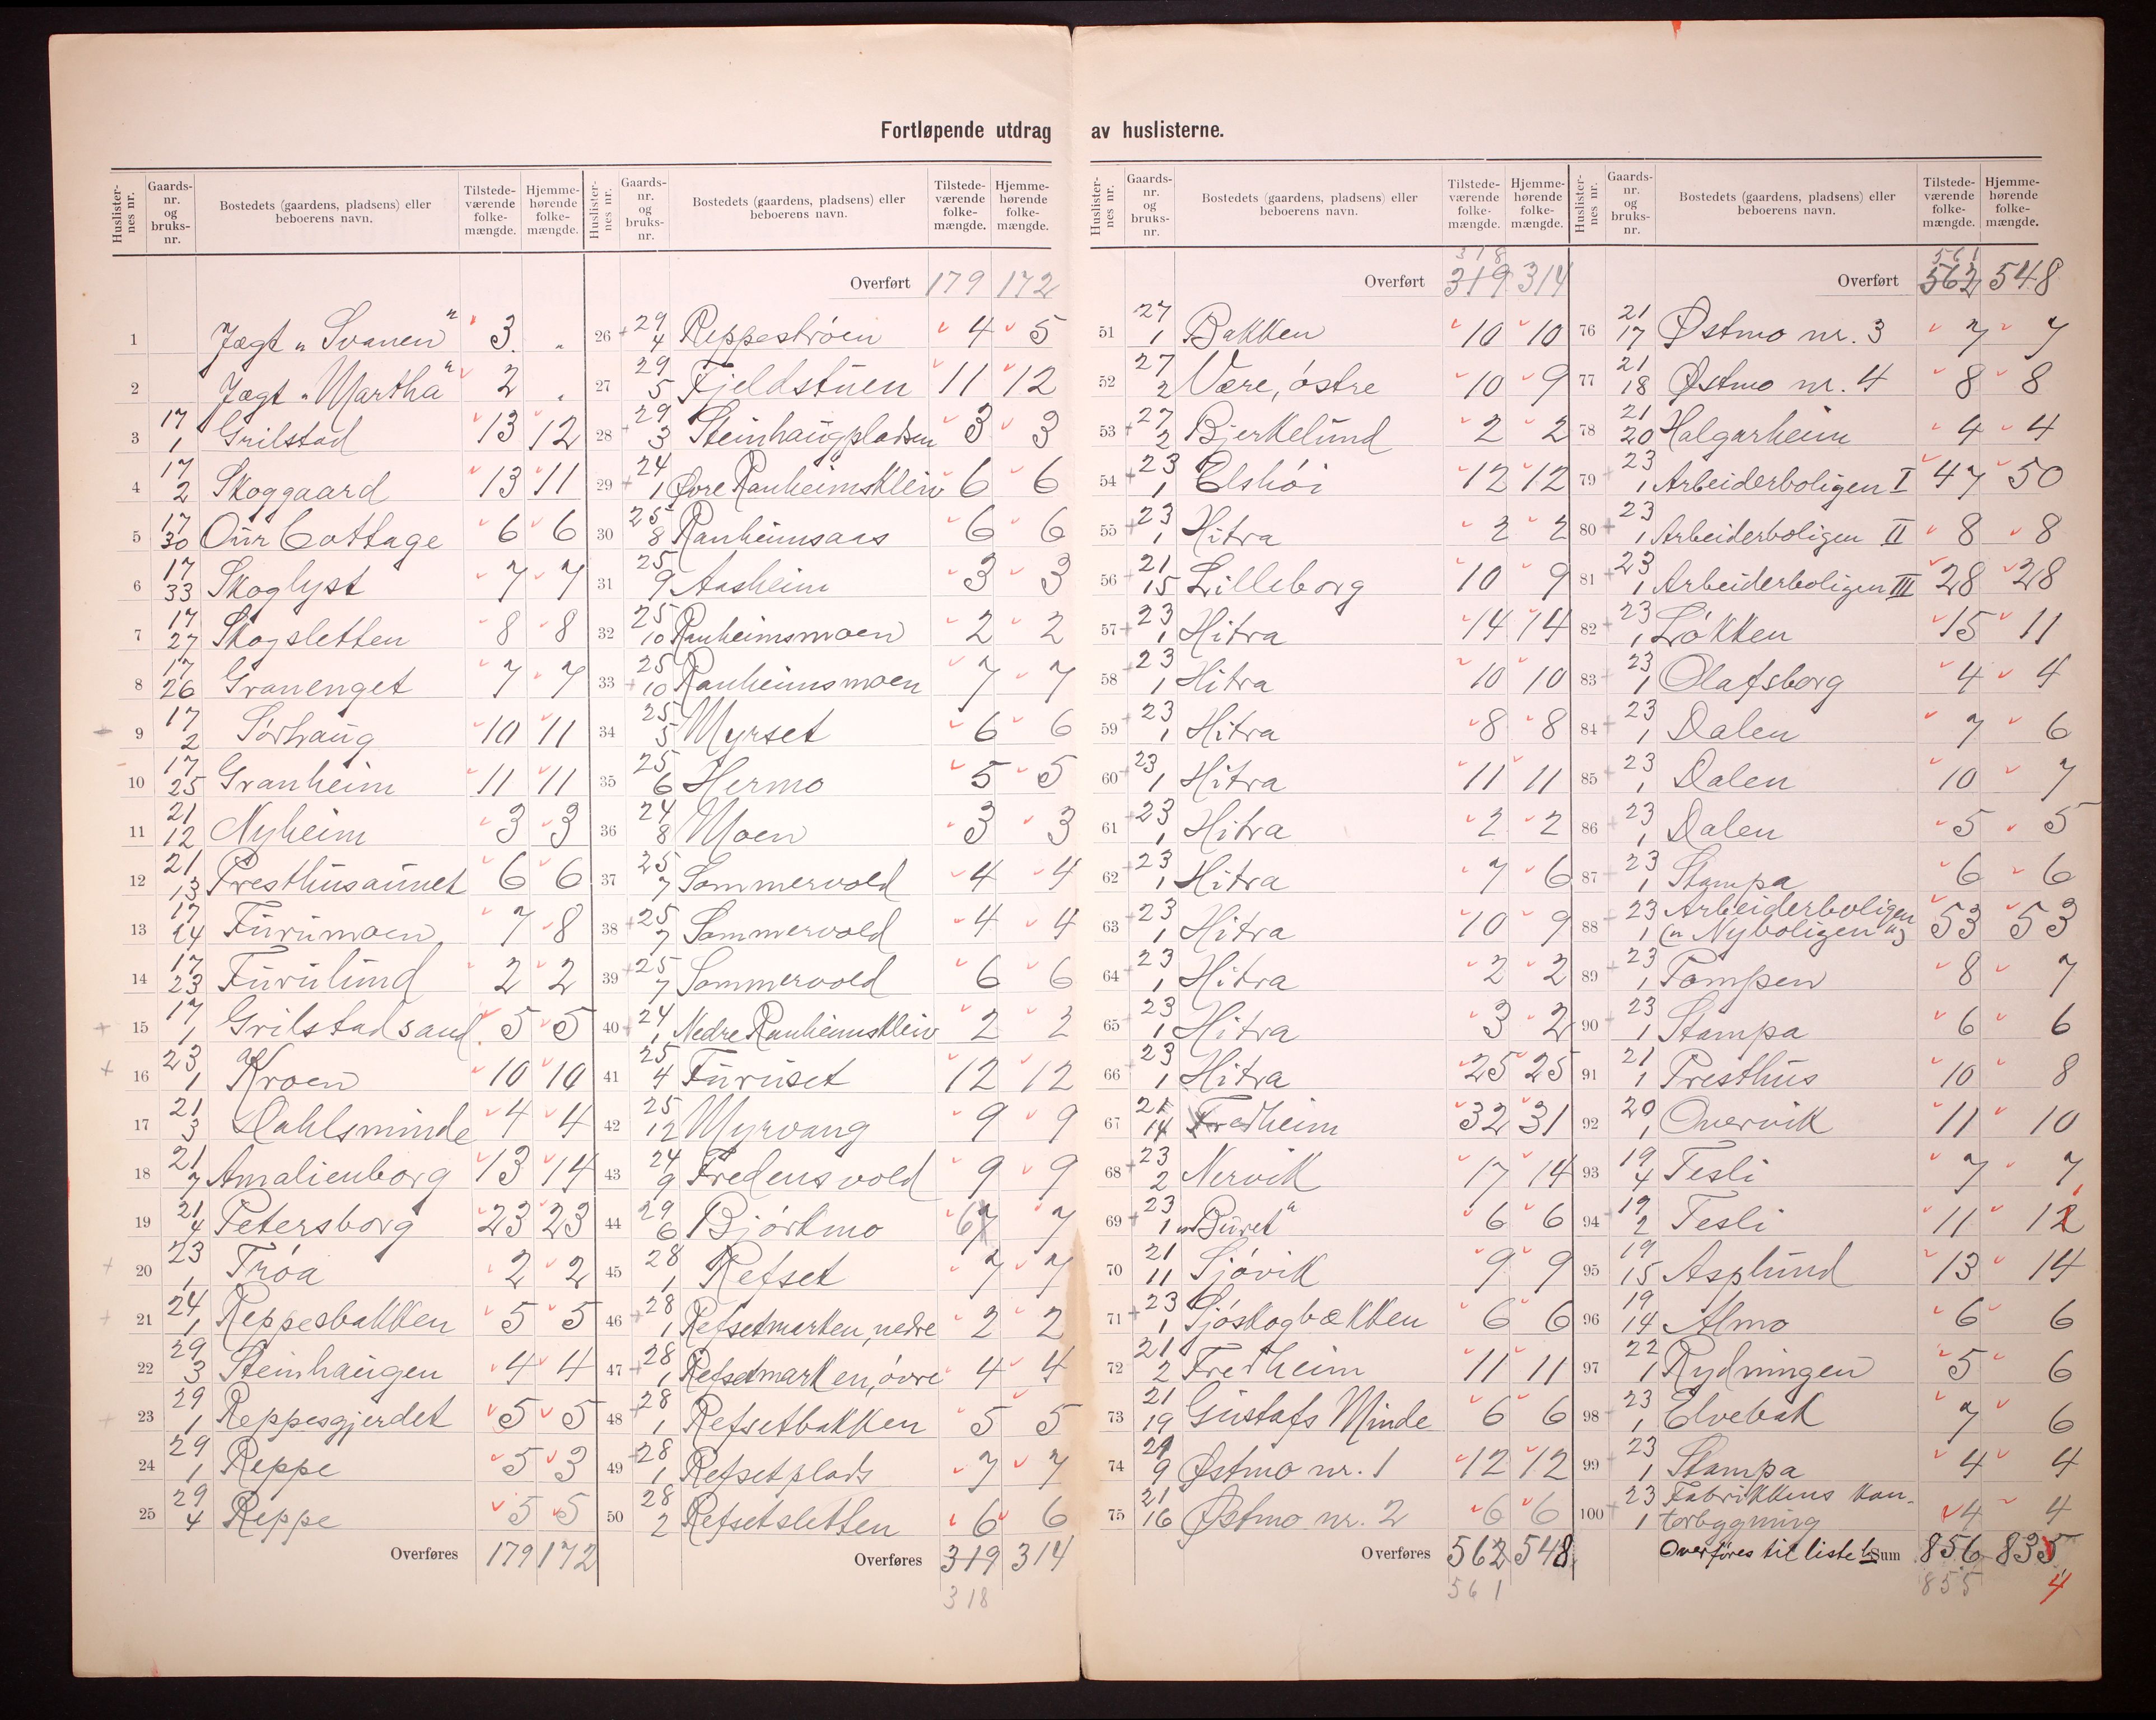 Fortløpende utdrag av huslisterne.
Huslister-nes nr. | Gaards-nr. og bruks-nr. | Bostedets (gaardens, pladsens) eller beboerens navn. | Tilstede-værende folke-mængde. | Hjemme-hørende folke-mængde.
1 Jægt „Svanen" 3 „
2 Jægt „Martha" 2 „
3 17/1 Grilstad 13 12
4 17/2 Skoggaard 13 11
5 17/30 Our Cottage 6 6
6 17/33 Skoglyst 7 7
7 17/27 Skogsletten 8 8
8 17/26 Granenget 7 7
9 17/2 Sørhaug 10 11
10 17/25 Granheim 11 11
11 21/12 Nyheim 3 3
12 21/13 Presthusaunet 6 6
13 17/24 Furumoen 7 8
14 17/23 Furulund 2 2
15 17/1 Grilstadsand 5 5
16 23/1 Kroen 10 10
17 21/3 Dahlsminde 4 4
18 21/7 Amalienborg 13 14
19 21/4 Petersborg 23 23
20 23/1 Trøa 2 2
21 24/1 Reppesbakken 5 5
22 29/3 Steinhaugen 4 4
23 29/1 Reppesgjerdet 5 5
24 29/1 Reppe 5 3
25 29/4 Reppe 5 5
Overføres 179 172
Huslister-nes nr. | Gaards-nr. og bruks-nr. | Bostedets (gaardens, pladsens) eller beboerens navn. | Tilstede-værende folke-mængde. | Hjemme-hørende folke-mængde.
Overført 179 172
26 29/4 Reppestrøen 4 5
27 29/5 Fjeldstuen 11 12
28 29/3 Steinhaugpladsen 3 3
29 24/1 Øvre Ranheimskleiv 6 6
30 25/8 Ranheimsaas 6 6
31 25/9 Aasheim 3 3
32 25/10 Ranheimsmoen 2 2
33 25/10 Ranheimsmoen 7 7
34 25/5 Myrset 6 6
35 25/6 Hermo 5 5
36 24/8 Moen 3 3
37 25/7 Sommervold 4 4
38 25/7 Sommervold 4 4
39 25/7 Sommervold 6 6
40 24/1 Nedre Ranheimskleiv 2 2
41 25/4 Furuset 12 12
42 25/12 Myrvang 9 9
43 24/9 Fredensvold 9 9
44 29/6 Bjørkmo 6 7
45 28/1 Refset 7 7
46 28/1 Refsetmarken, nedre 2 2
47 28/1 Refsetmarken, øvre 4 4
48 28/1 Refsetbakken 5 5
49 28/1 Refsetplads 7 7
50 28/2 Refsetsletten 6 6
Overføres 319 314
318
Huslister-nes nr. | Gaards-nr. og bruks-nr. | Bostedets (gaardens, pladsens) eller beboerens navn. | Tilstede-værende folke-mængde. | Hjemme-hørende folke-mængde.
318
Overført 319 314
51 27/1 Bakken 10 10
52 27/2 Være, østre 10 9
53 27/2 Bjerkelund 2 2
54 23/1 Elshøi 12 12
55 23/1 Hitra 2 2
56 21/15 Lilleborg 10 9
57 23/1 Hitra 14 14
58 23/1 Hitra 10 10
59 23/1 Hitra 8 8
60 23/1 Hitra 11 11
61 23/1 Hitra 2 2
62 23/1 Hitra 7 6
63 23/1 Hitra 10 9
64 23/1 Hitra 2 2
65 23/1 Hitra 3 2
66 23/1 Hitra 25 25
67 21/14 Fredheim 32 31
68 23/2 Nervik 17 14
69 23/1 „Buret" 6 6
70 21/11 Sjøvik 9 9
71 23/1 Sjøskogbækken 6 6
72 21/2 Fredheim 11 11
73 21/19 Gustafs Minde 6 6
74 21/9 Østmo nr. 1 12 12
75 21/16 Østmo nr. 2 6 6
Overføres 562 548
561
Huslister-nes nr. | Gaards-nr. og bruks-nr. | Bostedets (gaardens, pladsens) eller beboerens navn. | Tilstede-værende folke-mængde. | Hjemme-hørende folke-mængde.
561
Overført 562 548
76 21/17 Østmo nr. 3 7 7
77 21/18 Østmo nr. 4 8 8
78 21/20 Halgarheim 4 4
79 23/1 Arbeiderboligen I 47 50
80 23/1 Arbeiderboligen II 8 8
81 23/1 Arbeiderboligen III 28 28
82 23/1 Løkken 15 11
83 23/1 Olafsborg 4 4
84 23/1 Dalen 7 6
85 23/1 Dalen 10 7
86 23/1 Dalen 5 5
87 23/1 Stampa 6 6
88 23/1 Arbeiderboligen
(„Nyboligen") 53 53
89 23/1 Tampen 8 7
90 23/1 Stampa 6 6
91 21/1 Presthus 10 8
92 20/1 Overvik 11 10
93 19/4 Tesli 7 7
94 19/2 Tesli 11 12
95 19/15 Asplund 13 14
96 19/14 Almo 6 6
97 22/1 Rydningen 5 6
98 23/1 Elvebak 7 6
99 23/1 Stampa 4 4
100 23/1 Fabrikkens kon-
torbygning 4 4
Overføres til liste b Sum 856 835
855 4